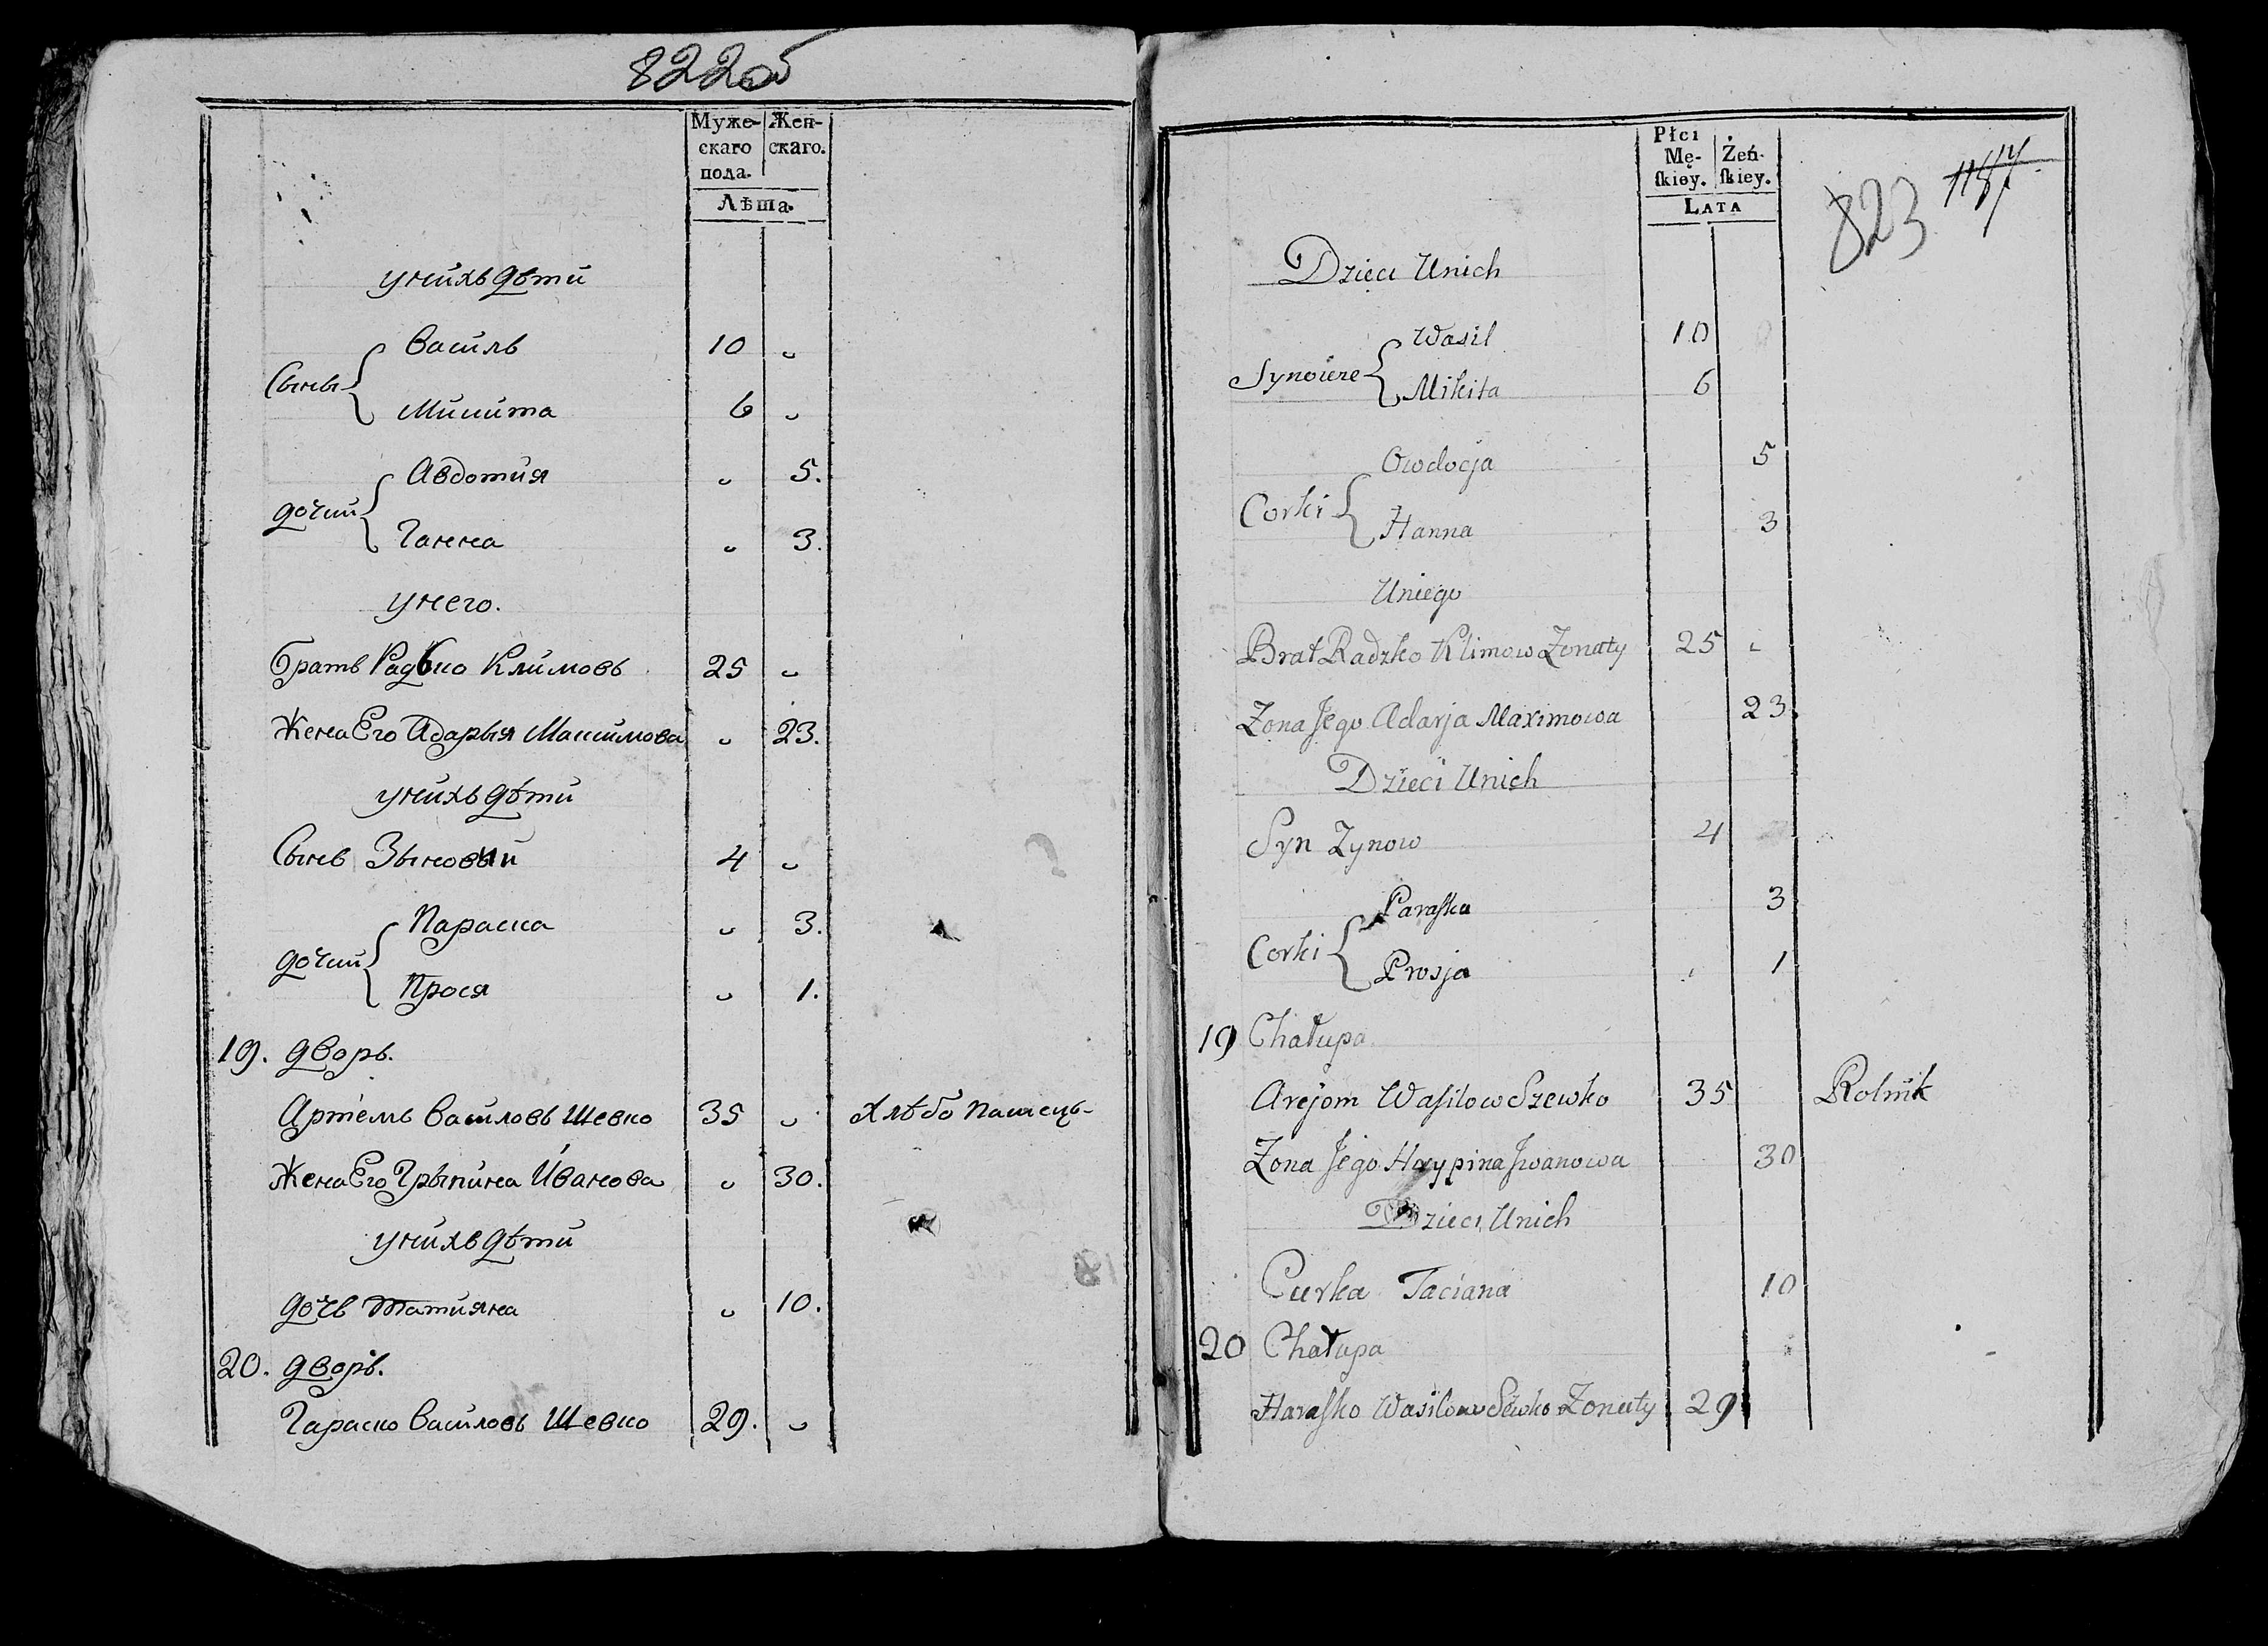 822об
Муже-
скаго
пола.
Жен-
скаго.
Лѣта.
унихъ дѣти
Сыны
Василь 10
Микита 6
дочки
Авдотия 5.
Ганна 3.
унего.
братъ Радько Климовъ 25
Жена Его Адарья Максимова 23.
унихъ дѣти
Сынъ Зыновий 4
дочки
Параска 3.
Прося 1.
19. дворъ.
Артемъ Василовъ Шевко 35 Хлѣбо пашець-
Жена Его Грыпина Иванова 30.
унихъ дѣти
дочь Татияна 10.
20. дворъ.
Гараско Василовъ Шевко 29.
823
Płci
Mę-
ſkiey.
Żeń-
ſkiey.
LATA
Dzieci Unich
Synowie
Wasil 10
Mikita 6
Corki
Owdocja 5
Hanna 3
Uniego
Brat Radzko Klimow Zonaty 25
Zona Jego Adarja Maximowa 23
Dzieci Unich
Syn Zynow 4
Corki
Paraſka 3
Prosja 1
19 Chałupa
Arejom Waſilow Szewko 35 Rolnik
Zona Jego Hrypina Jwanowa 30
Dzieci Unich
Curka Taciana 10
20 Chałupa
Haraſko Wasilow Sewko Zonaty 29